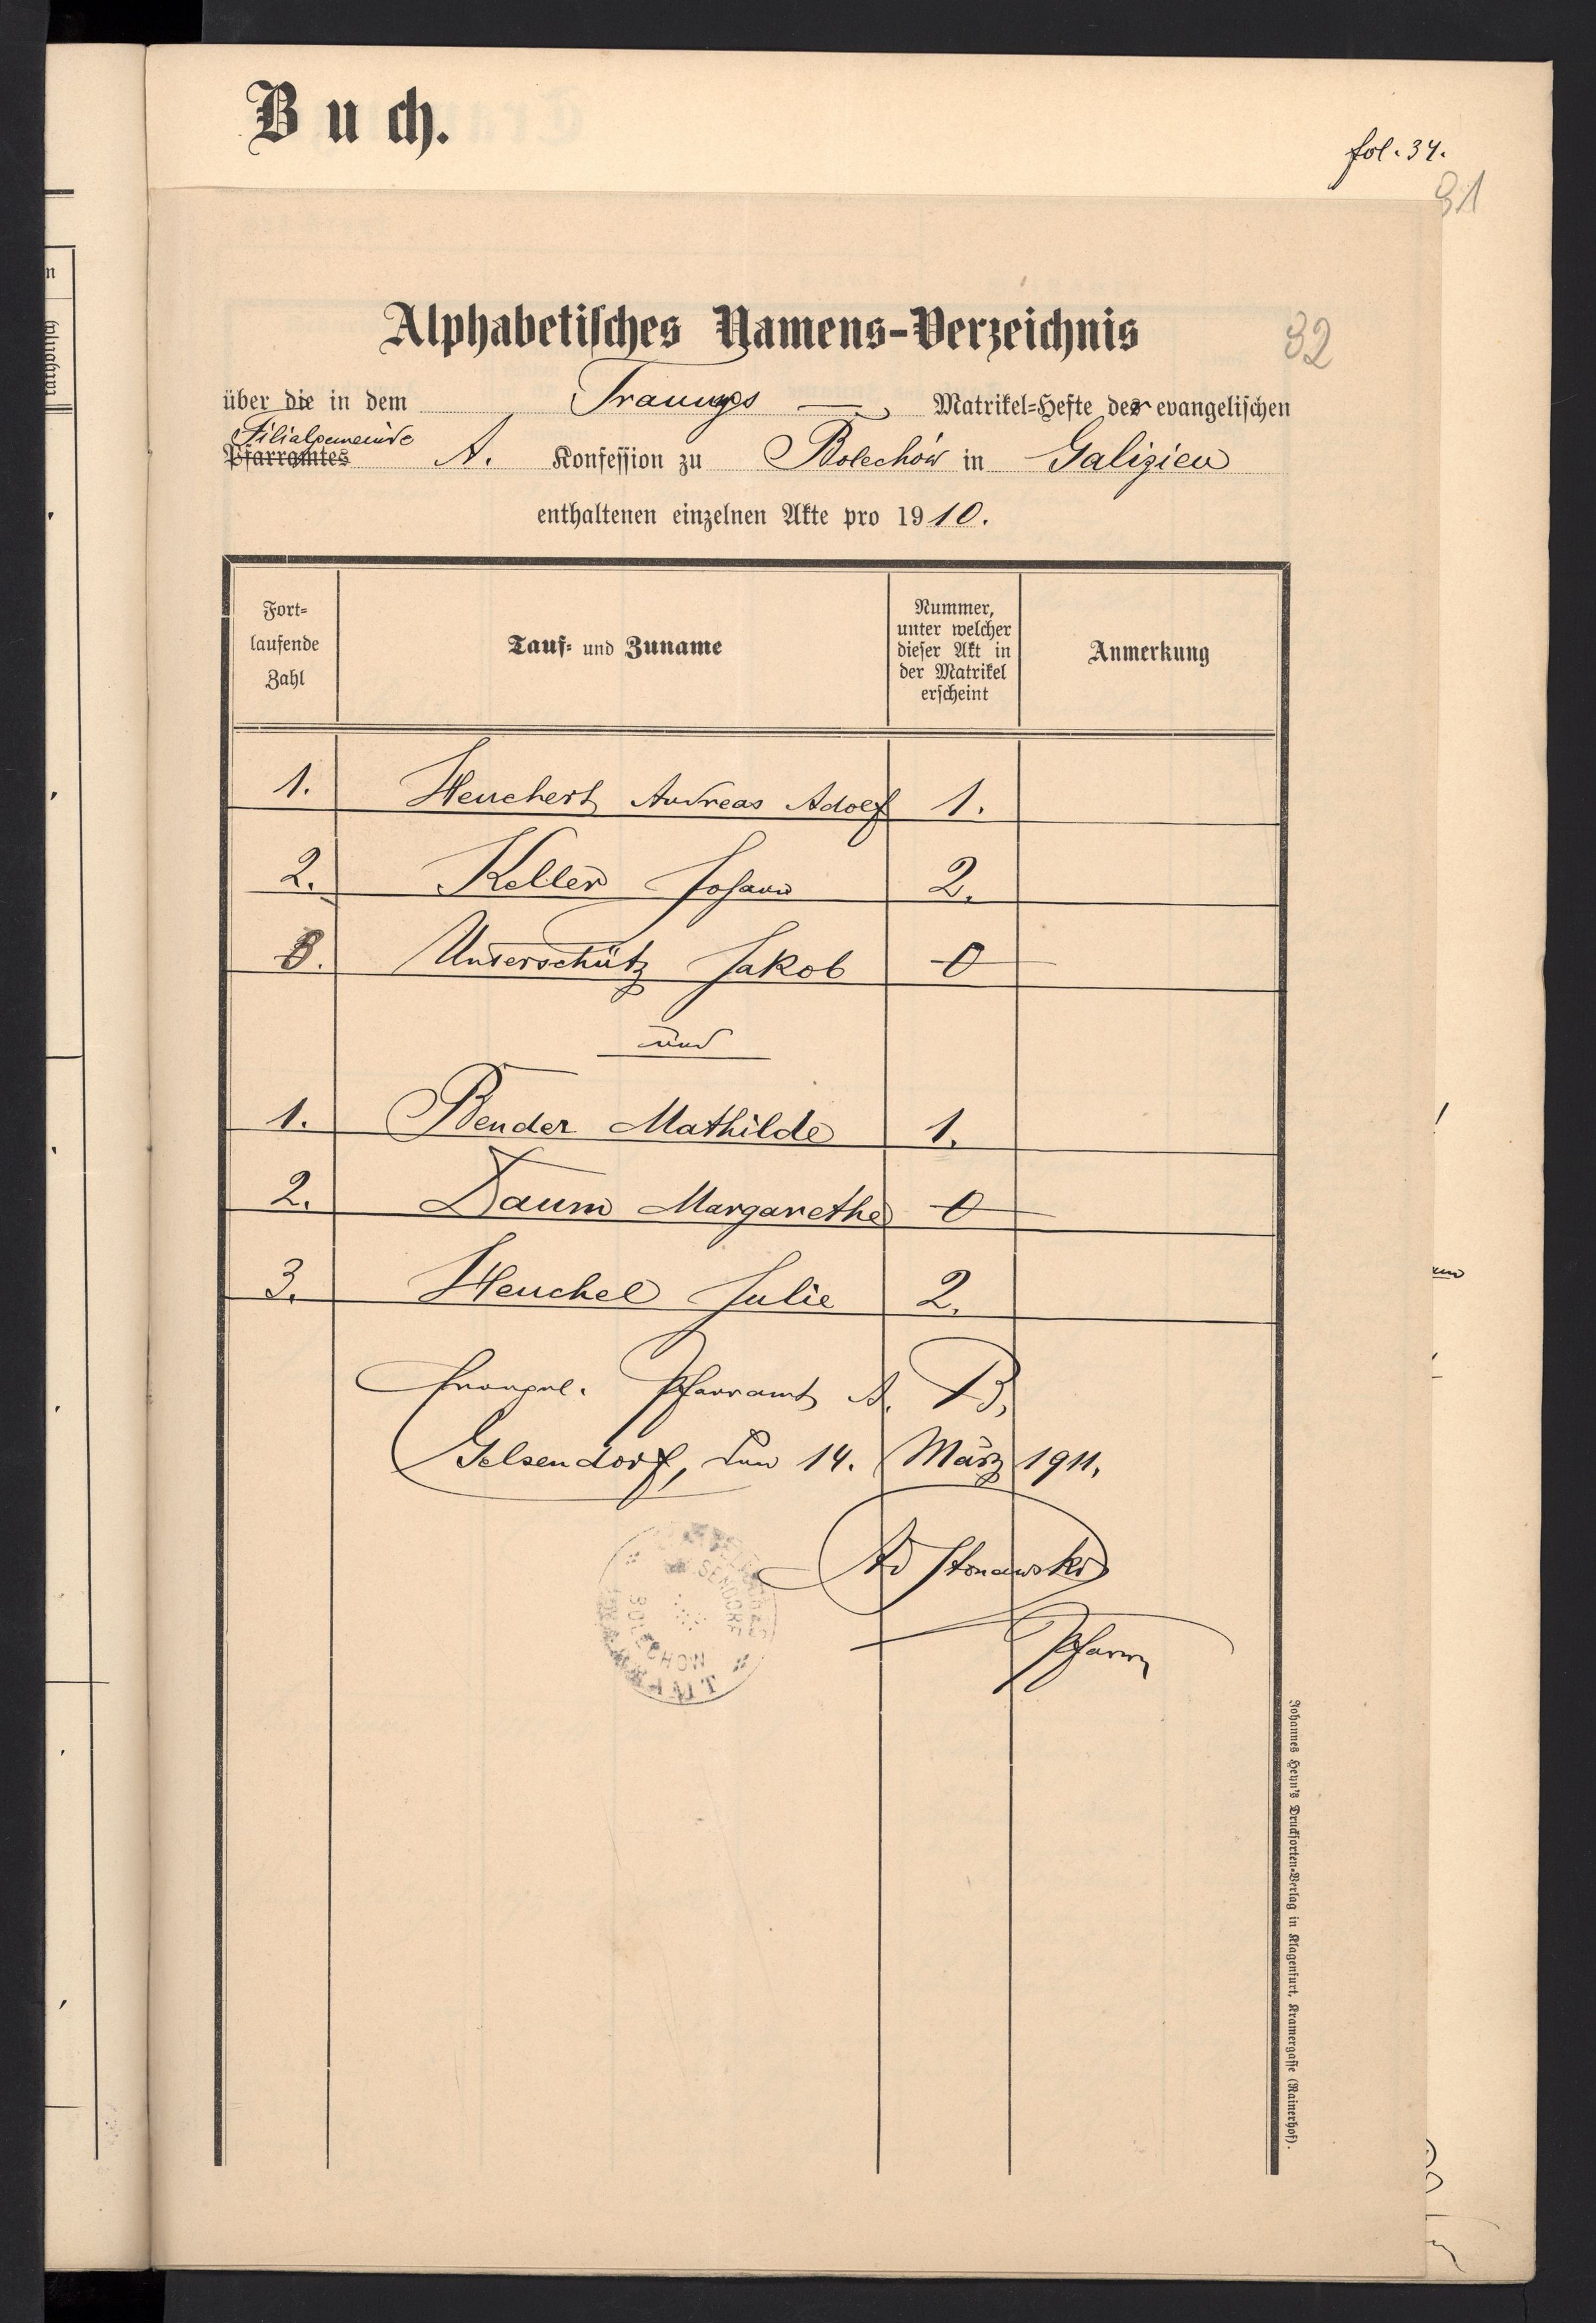 Buch.
fol. 34.
31
32
Alphabetisches Namens-Verzeichnis
über die in dem Trauungs — Matrikel-Hefte der evangelischen
Filialgemeinde
Pfarramtes A. Konfession zu Bolechów in Galizien
enthaltenen einzelnen Akte pro 1910.
Fort-
laufende
Zahl
Tauf- und Zuname
Nummer,
unter welcher
dieser Akt in
der Matrikel
erscheint
Anmerkung
1. Heuchert Andreas Adolf 1.
2. Keller Johann 2.
3. Unterschütz Jakob 0
und
1. Bender Mathilde 1.
2. Daum Margarethe 0
3. Heuchel Julie 2.
Evangel. Pfarramt A. B.
Gelsendorf, den 14. März 1911.
Ad Stonawski
Pfarrer
BOLECHOW
Johannes Heyn's Drucksorten-Verlag in Klagenfurt, Kramergasse (Rainerhof).